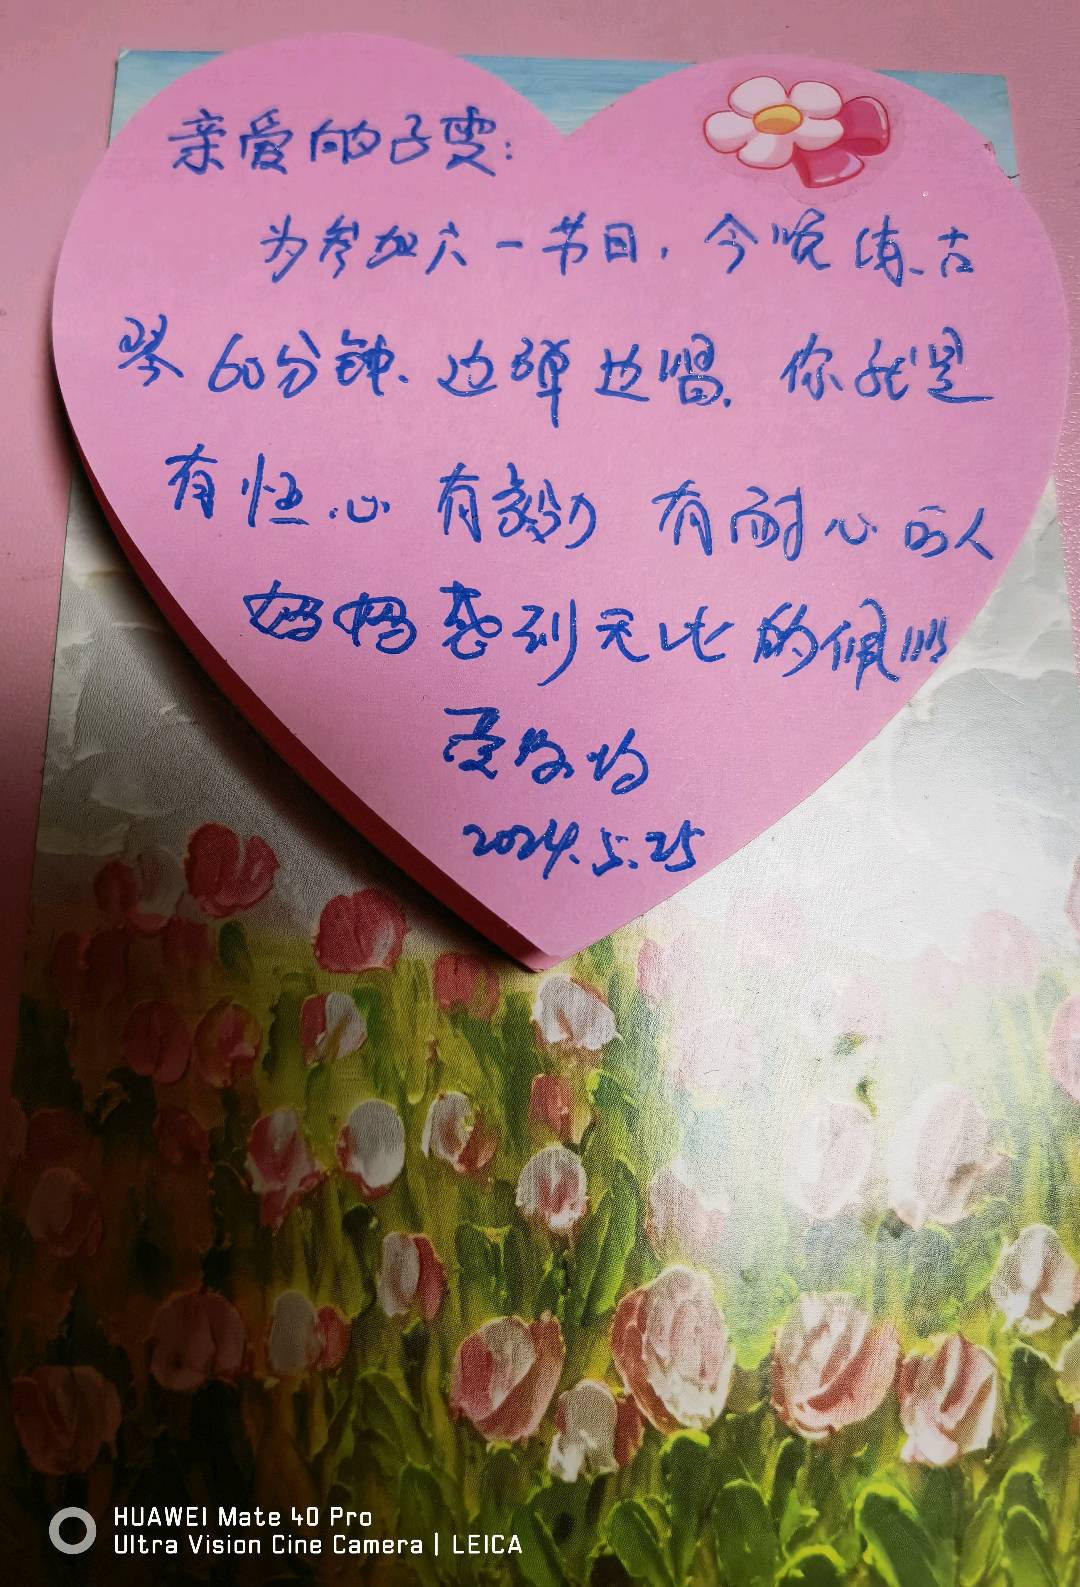 亲爱的子雯:
为参加六一节目,今晚练古
琴60分钟、边弹边唱、你就是
有恒心 有毅力 有耐心的人
妈妈感到无比的佩!!!
爱你的
2024.5.25
HUAWEI Mate 40 Pro
Ultra Vision Cine Camera | LEICA